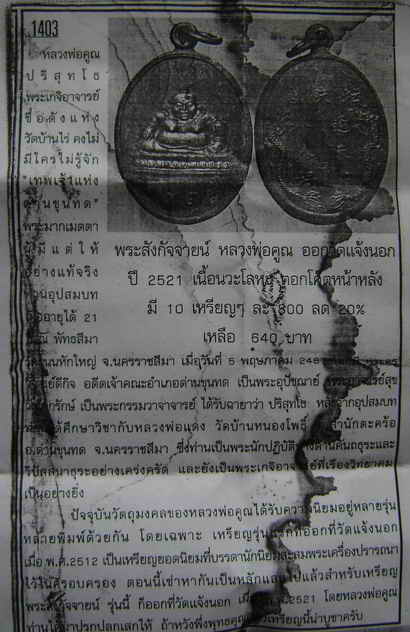 1403
หลวงพ่อคูณ
ปริสุทโธ
พระเกจิอาจารย์
ชื่อดังแห่ง
วัดบ้านไร่ คงไม่
มีใครไม่รู้จัก
"เทพเจ้าแห่ง
ด่านขุนทด"
พระมากเมตตา
ผู้มีแต่ให้
อย่างแท้จริง
ท่านอุปสมบท
อายุได้ 21
พัทธสีมา
พระสังกัจจายน์ หลวงพ่อคูณ ออกวัดแจ้งนอก
ปี 2521 เนื้อนวะโลหะ ตอกโค้ดหน้าหลัง
มี 10 เหรียญๆ ละ 800 ลด 20%
เหลือ 640 บาท
จ.นครราชสีมา เมื่อวันที่ 5 พฤษภาคม
อดีตเจ้าคณะอำเภอด่านขุนทด เป็นพระอุปัชฌาย์
เป็นพระกรรมวาจาจารย์ ได้รับฉายาว่า ปริสุทโธ หลังจากอุปสมบท
ได้ศึกษาวิชากับหลวงพ่อแดง วัดบ้านหนองโพธิ์
อ.ด่านขุนทด จ.นครราชสีมา ซึ่งท่านเป็นพระนักปฏิบัติ
วิปัสสนาธุระอย่างเคร่งครัด และยังเป็นพระเกจิอาจารย์ที่เรืองวิทยาคม
เป็นอย่างยิ่ง
ปัจจุบันวัตถุมงคลของหลวงพ่อคูณได้รับความนิยมอยู่หลายรุ่น
หลายพิมพ์ด้วยกัน โดยเฉพาะ เหรียญรุ่นแรกที่ออกที่วัดแจ้งนอก
เมื่อ พ.ศ.2512 เป็นเหรียญยอดนิยมที่บรรดานักนิยมสะสมพระเครื่องปรารถนา
ไว้ในครอบครอง ตอนนี้เช่าหากันเป็นหลักแสนไปแล้วสำหรับเหรียญ
พระสังกัจจายน์ รุ่นนี้ ก็ออกที่วัดแจ้งนอก เมื่อ พ.ศ.2521 โดยหลวงพ่อคูณ
ท่านได้มาปรกปลุกเสกให้ ถ้าหวังพึ่งพุทธคุณ เหรียญนี้น่าบูชาครับ